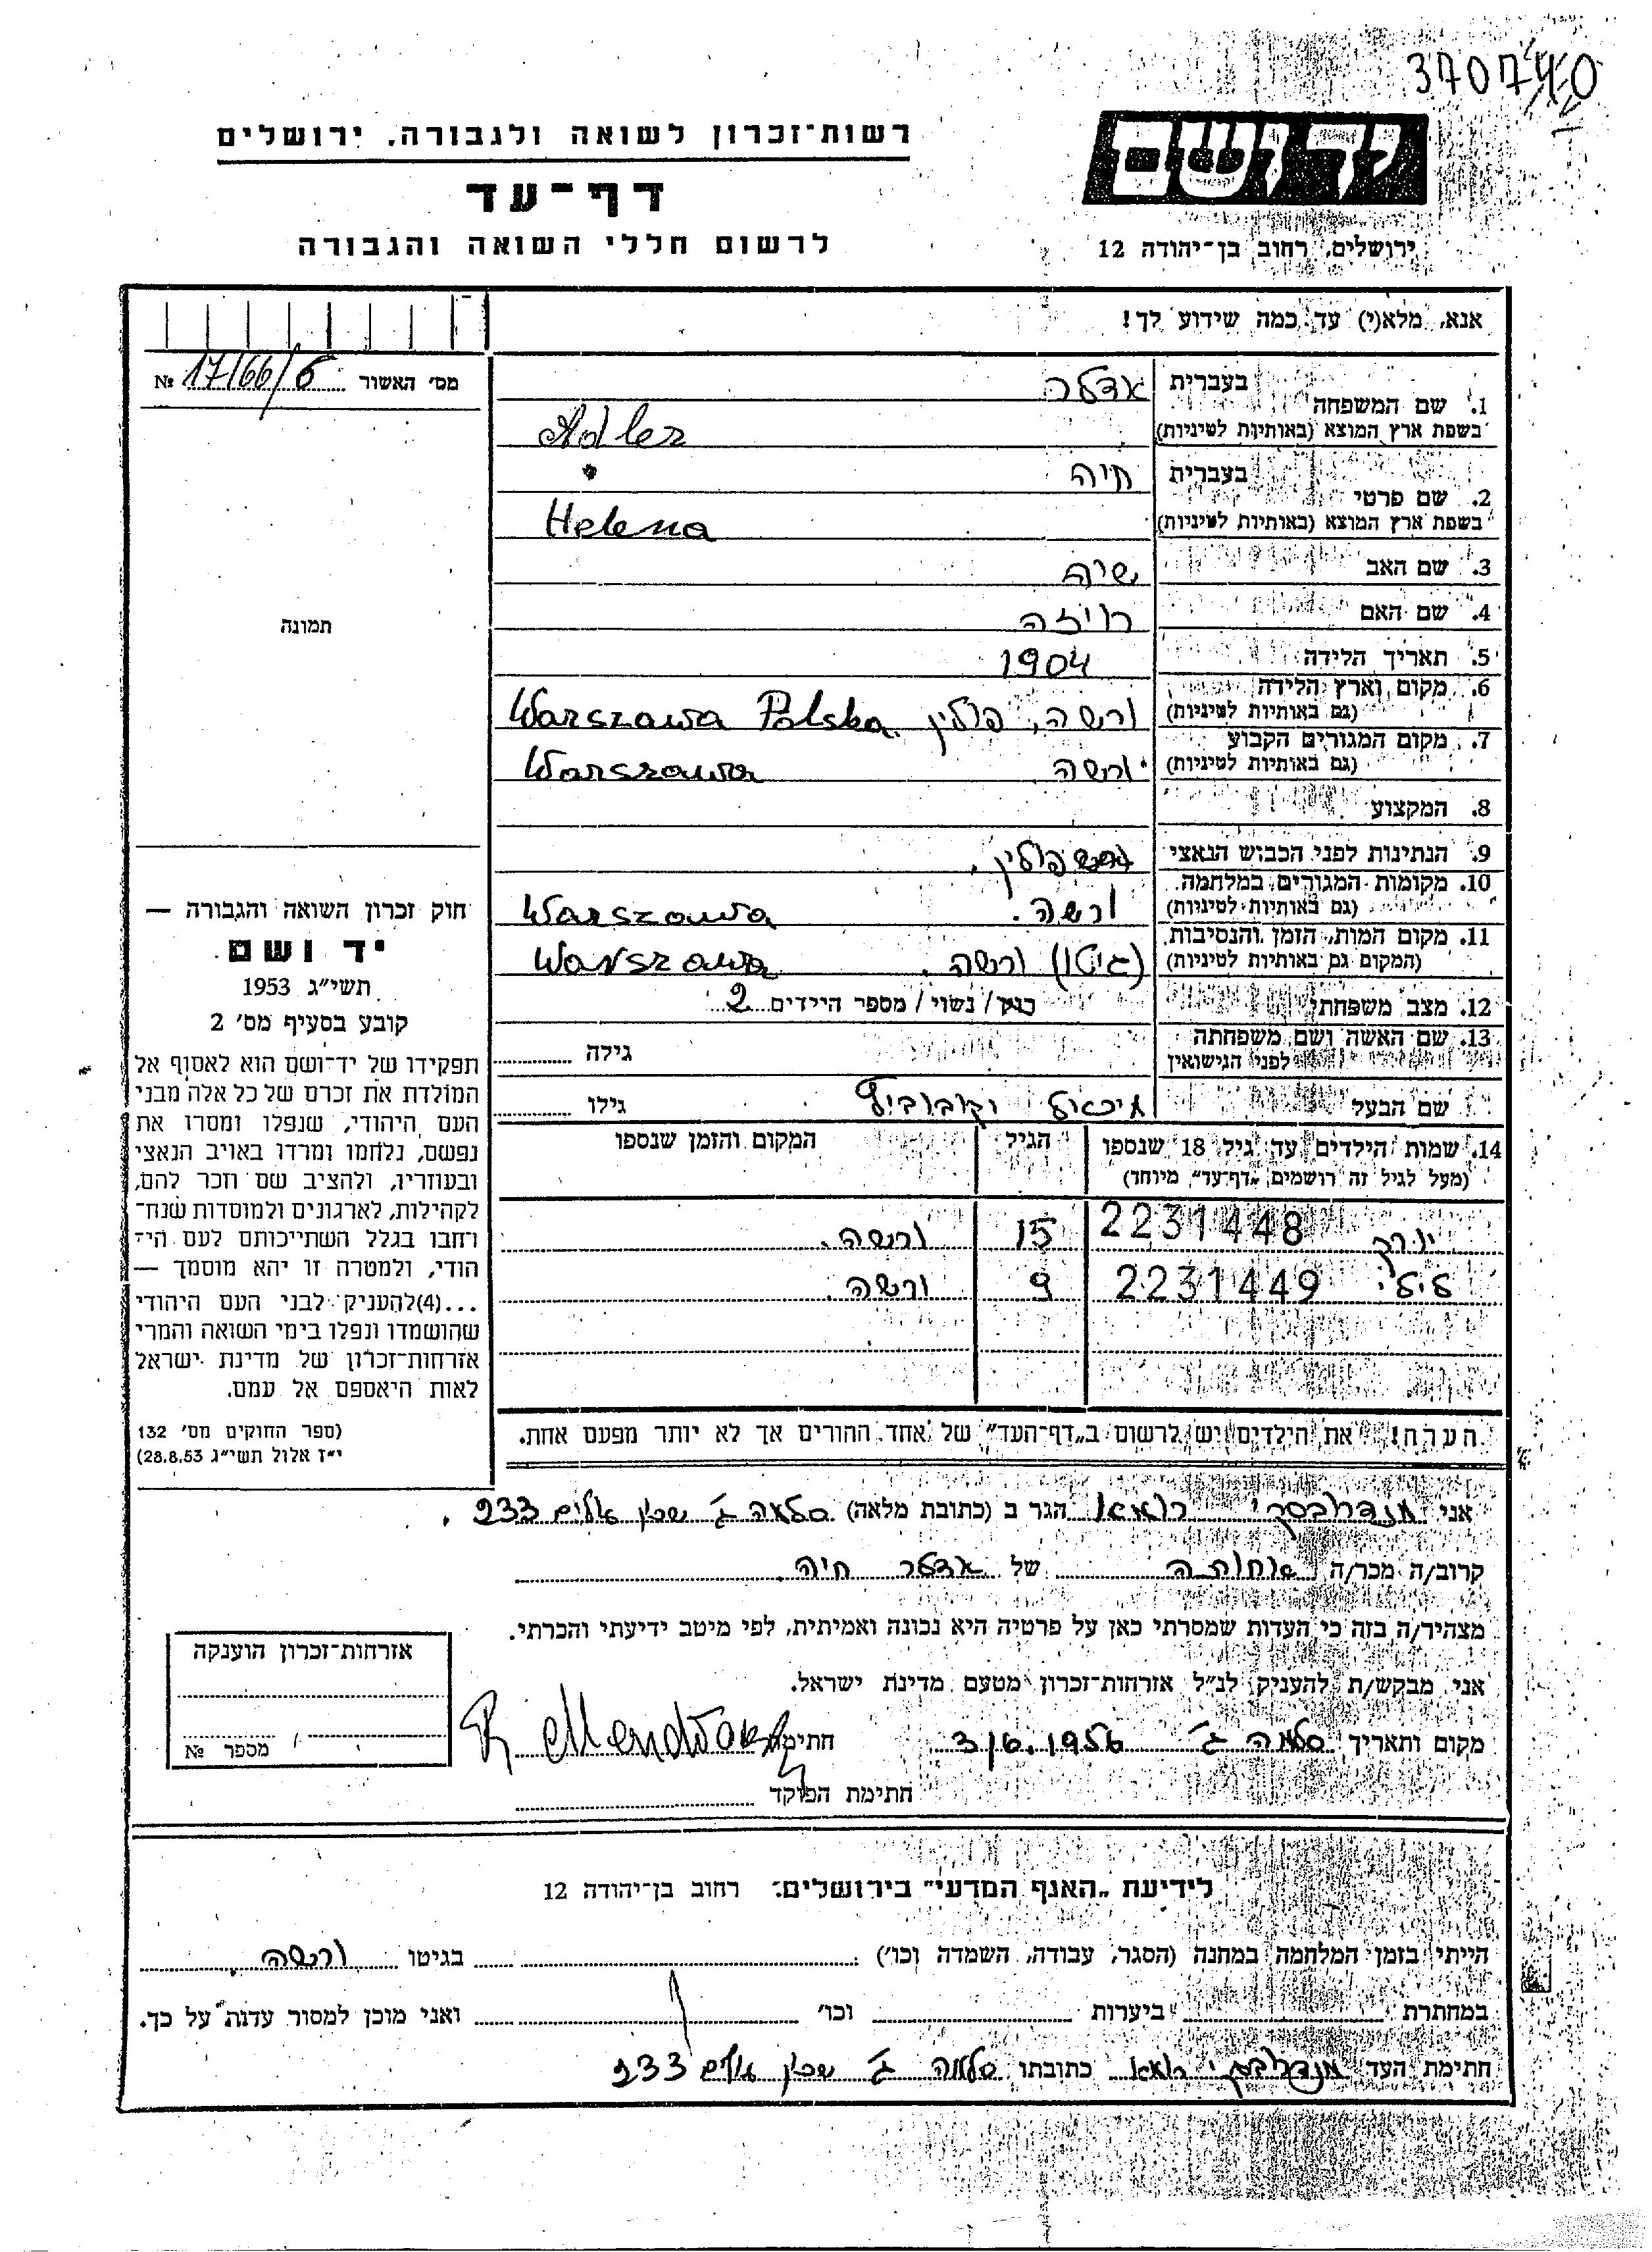 370740
יד ושם
רשות־זכרון לשואה ולגבורה, ירושלים
דף־עד
לרשום חללי השואה והגבורה
ירושלים, רחוב בן־יהודה 12
אנא, מלא(י) עד כמה שידוע לך!
מס׳ האשור 17/66/6 №
1. שם המשפחה בעברית אדלר
בשפת ארץ המוצא (באותיות לטיניות) Adler
2. שם פרטי בעברית חיה
בשפת ארץ המוצא (באותיות לטיניות) Helena
3. שם האב שיה
4. שם האם רויזה
תמונה
5. תאריך הלידה 1904
6. מקום וארץ הלידה (גם באותיות לטיניות) ורשה, פולין Warszawa Polska
7. מקום המגורים הקבוע (גם באותיות לטיניות) ורשה Warszawa
8. המקצוע
9. הנתינות לפני הכבוש הנאצי פולין.
10. מקומות המגורים במלחמה (גם באותיות לטיניות) ורשה. Warszawa
11. מקום המות, הזמן והנסיבות (המקום גם באותיות לטיניות) (גיטו) ורשה. Warszawa
12. מצב משפחתי רווק / נשוי / מספר הילדים 2
13. שם האשה ושם משפחתה לפני הנישואין גילה
שם הבעל מיכאל גילו
14. שמות הילדים עד גיל 18 שנספו הגיל המקום והזמן שנספו
(מעל לגיל זה רושמים „דף־עד” מיוחד)
יורק 2231448 15 ורשה.
לילי 2231449 9 ורשה.
חוק זכרון השואה והגבורה —
יד ושם
תשי״ג 1953
קובע בסעיף מס׳ 2
תפקידו של יד־ושם הוא לאסוף אל
המולדת את זכרם של כל אלה מבני
העם היהודי, שנפלו ומסרו את
נפשם, נלחמו ומרדו באויב הנאצי
ובעוזריו, ולהציב שם וזכר להם,
לקהילות, לארגונים ולמוסדות שנח־
רבו בגלל השתייכותם לעם הי־
הודי, ולמטרה זו יהא מוסמך —
...(4)להעניק לבני העם היהודי
שהושמדו ונפלו בימי השואה והמרי
אזרחות־זכרון של מדינת ישראל
לאות היאספם אל עמם.
(ספר החוקים מס׳ 132
י״ז אלול תשי״ג 28.8.53)
הערה! את הילדים יש לרשום ב„דף־העד” של אחד ההורים אך לא יותר מפעם אחת.
אני הגר ב (כתובת מלאה) סלמה ג׳ שכון עולים 233.
קרוב/ה מכר/ה אחותה של אדלר חיה.
מצהיר/ה בזה כי העדות שמסרתי כאן על פרטיה היא נכונה ואמיתית, לפי מיטב ידיעתי והכרתי.
אני מבקש/ת להעניק לנ״ל אזרחות־זכרון מטעם מדינת ישראל.
מקום ותאריך סלמה ג׳ 1956 חתימה
חתימת הפוקד
אזרחות־זכרון הוענקה
מספר №
לידיעת „האגף המדעי” בירושלים: רחוב בן־יהודה 12
הייתי בזמן המלחמה במחנה (הסגר, עבודה, השמדה וכו׳) בגיטו ורשה.
במחתרת ביערות וכו׳ ואני מוכן למסור עדות על כך.
חתימת העד כתובתו סלמה ג׳ שכון עולים 233